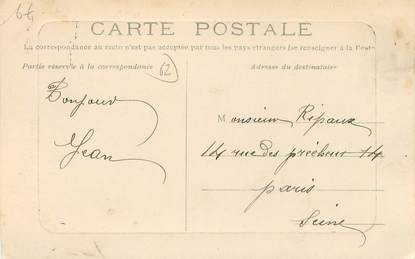 66
CARTE POSTALE
La correspondance au recto n'est pas acceptée par tous les pays étrangers (se renseigner à la Poste
Partie réservée à la correspondance
62
Adresse du destinataire
Bonjour
Jean
Monsieur Ripaux
14 rue des prêcheur 14
paris
Seine